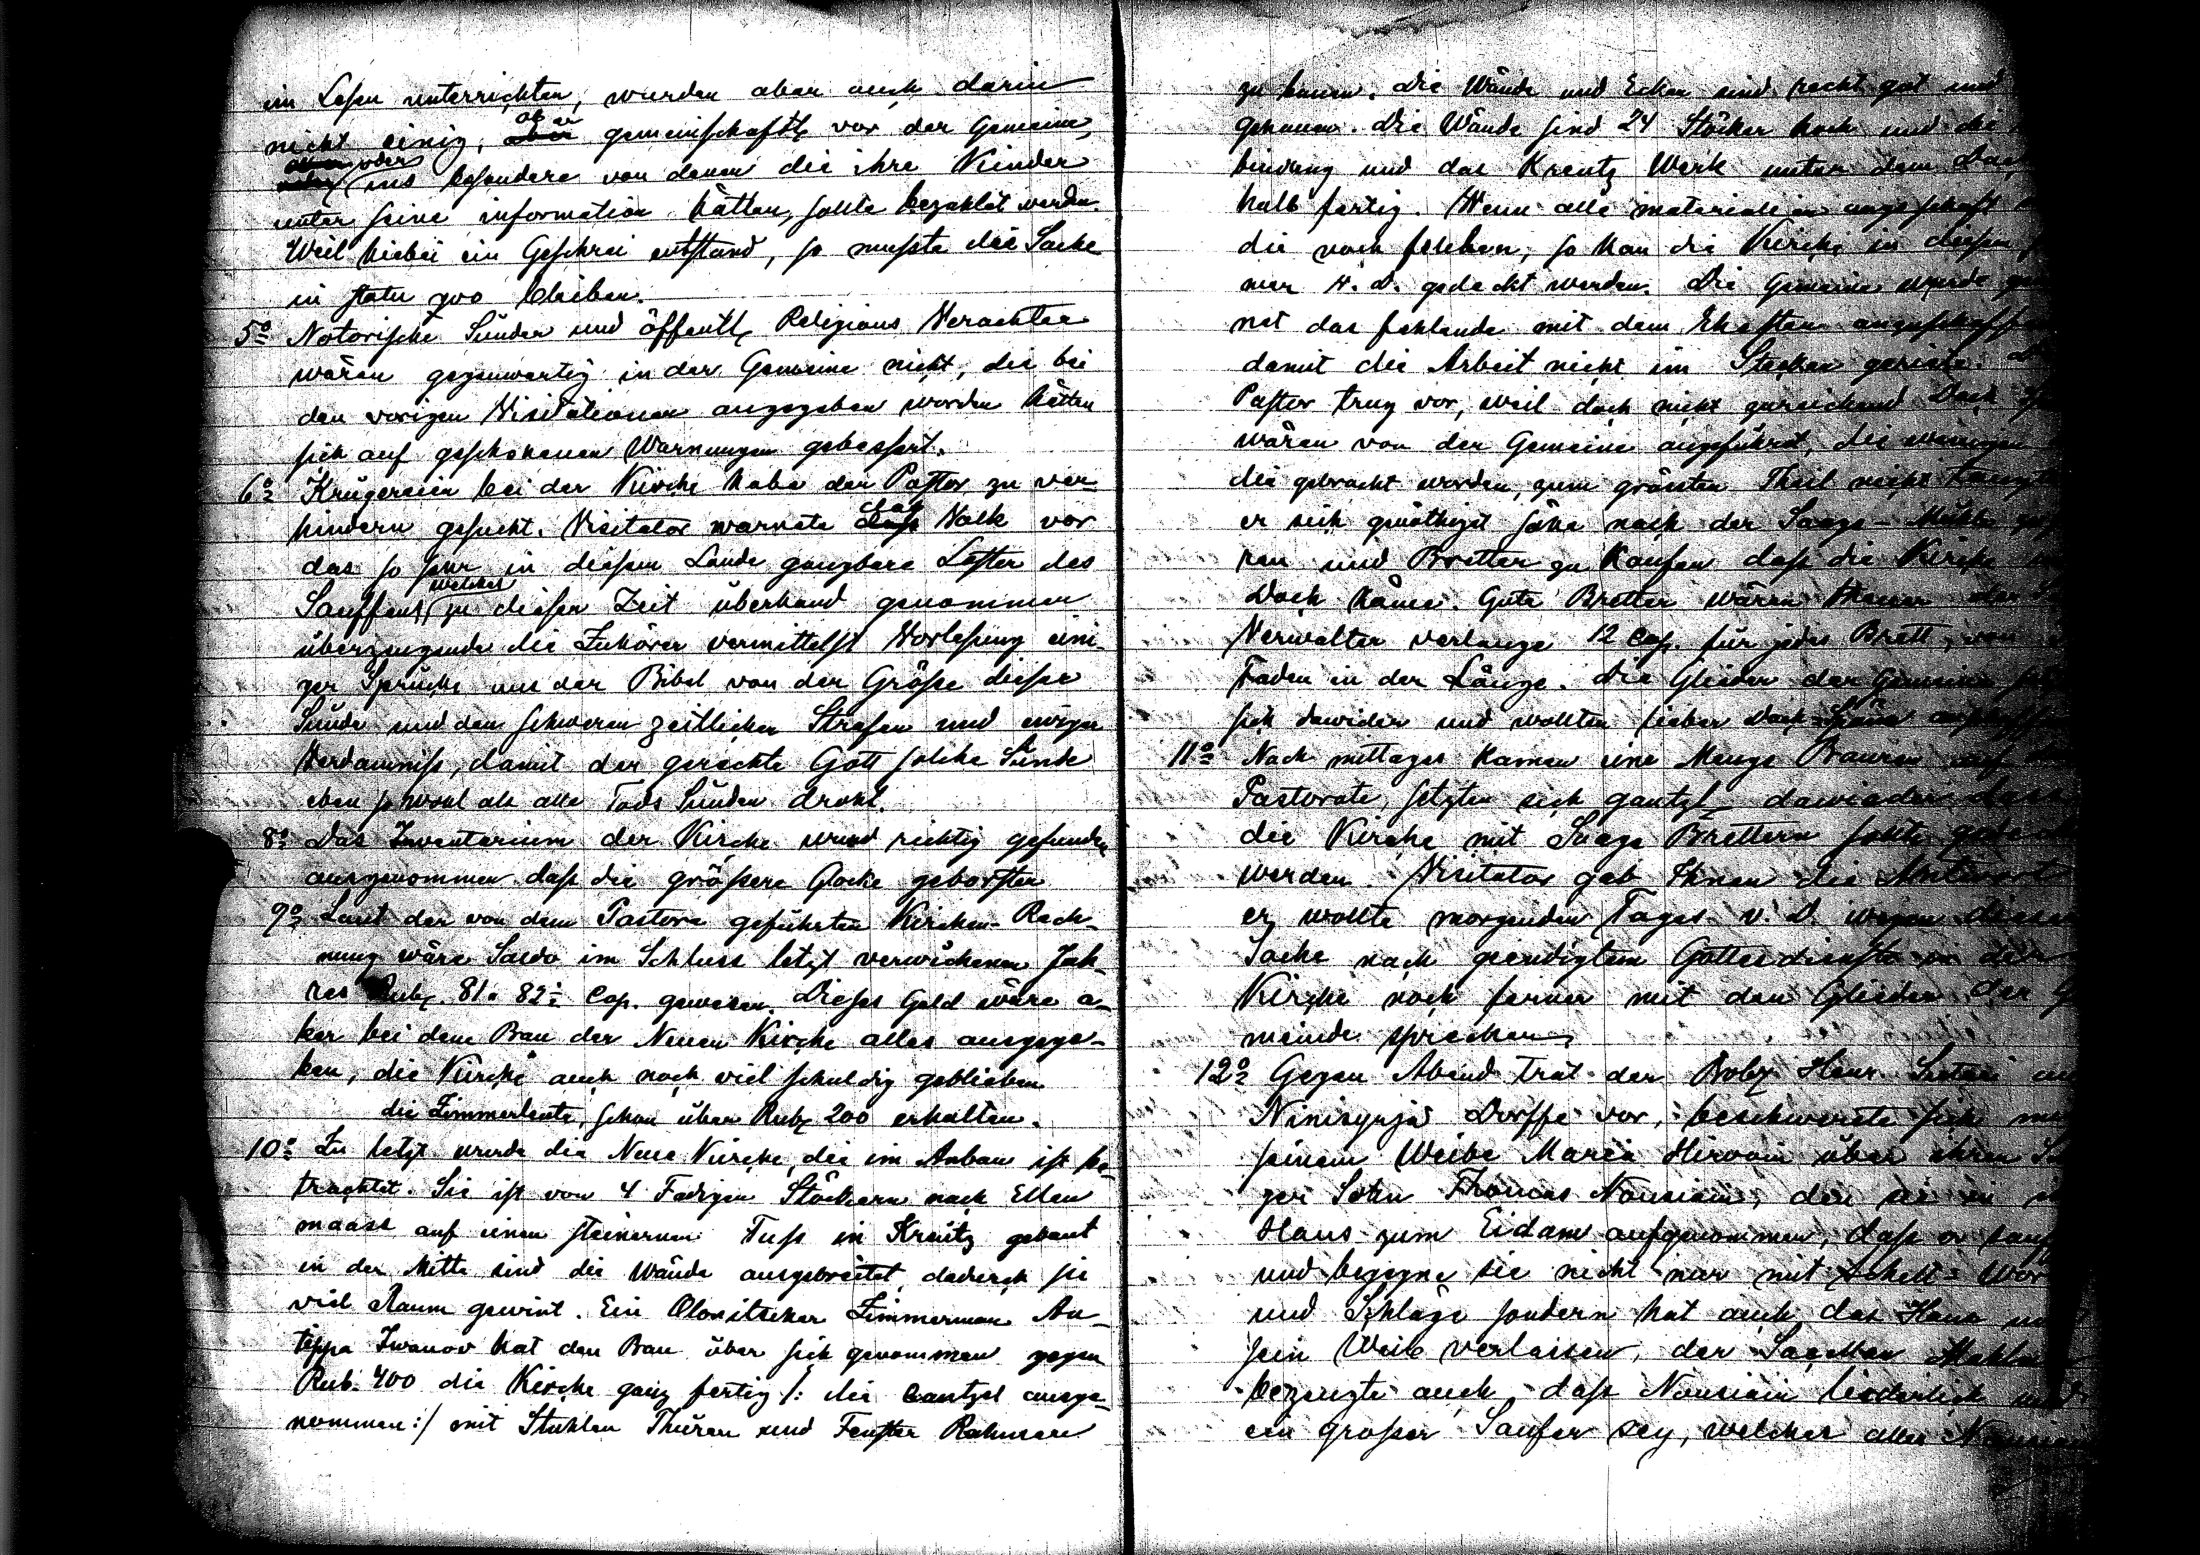 im Lesen unterrichten, wurden aber auch darin
nicht einig, ob er gemeinschaftl. vor der Gemeine,
oder ins besondere von denen die ihre Kinder
unter seine information hätten, sollte bezahlet werden.
Weil hiebei ein Geschrei entstand, so musste die Sache
in statu quo bleiben.
5º Notorische Sünder und öffentl. Religions Verachter
wären gegenwertig in der Gemeine nicht, die bei
den vorigen Visitationen angegeben worden hätten
sich auf geschehenen Warnungen gebessert.
6º Krügereien bei der Kirche habe der Pastor zu ver-
hindern gesucht. Visitator warnete das Volk vor
das so sehr in diesem Lande gangbare Laster des
Sauffens, welches zu dieser Zeit überhand genommen
überzeugende die Zuhörer vermittelst Vorlesung eini-
ger Sprüche aus der Bibel von der Größe dieser
Sünde und den schweren zeitlichen Strafen und ewigen
Verdamniss, damit der gerechte Gott solche Sünde
eben so wohl als alle Tods Sünden droht.
8º Das Inventarium der Kirche wurd richtig gefunden
ausgenommen dass die grössere Glocke geborsten
9º Laut der von dem Pastore geführten Kirchen-Rech-
nung wäre Saldo im Schluss letzt verwichenen Jah-
res Rub. 81. 82½ Cop. gewesen. Dieses Geld wäre a-
ber bei dem Bau der Neuen Kirche alles ausgege-
ben, die Kirche auch noch viel schuldig geblieben
die Zimmerleute, schon über Rub. 200 erhalten.
10º Zu letzt wurde die Neue Kirche, die im Anbau ist be-
trachtet. Sie ist von 4 Fadigen Stöckern nach Ellen
maass auf einen steinernen Fuss in Kreutz gebaut
in der Mitte sind die Wände ausgebreitet, dadurch sie
viel Raum gewint. Ein Olonitscher Zimmerman An-
teppa Iwanov hat den Bau über sich genommen gegen
Rub. 400 die Kirche ganz fertig /: die Cantzel ausge-
nommen :/ mit Stuhlen Thüren und Fenster Rahmen
zu bauen. Die Wände und Ecken sind recht gut und
gehauen. Die Wände sind 24 Stöcker hoch und die
bindung und das Kreutz Werk unter dem
halb fertig. Wenn alle materialien angeschaft
die noch fehlen, so kan die Kirche in diesem
mer V. D. gedeckt werden. Die Gemeine wurde
net das fehlende mit dem Ehesten
damit die Arbeit nicht im Stecken geriete.
Pastor trug vor, weil doch nicht zureichend Dach
wären von der Gemeine angeführet, die wenigen
die gebracht worden, zum grössten Theil nicht
er sich genöthiget sähe nach der Saage-Mühle
ren und Bretter zu kaufen dass die Kirche
Dach käme. Gute Bretter wären theuer der
Verwalter verlange 12 Cop. für jedes Brett, von
Faden in der Länge. Die Glieder der Gemeine
sich dawider und wollten lieber Dach
11º Nach mittages kamen eine Menge Bauren auf
Pastorate, setzten sich gantzl. dawieder dass
die Kirche mit Saage Brettern sollte
werden. Visitator gab Ihnen die Antwort
er wollte morgenden Tages v. D. wegen dieser
Sache nach geendigtem Gottesdienste in der
Kirche noch ferner mit den Glieder der
meinde sprechen.
12º Gegen Abend trat der Bobz Henr.
Dorffe vor, beschwerete sich
seinem Weibe Maria Hirvoin über ihren
ger Sohn Thomas Nousiain, den sie in
Haus zum Eidam aufgenommen, dass er
und begegne sie nicht nur mit Schelt-
und Schläge sondern hat auch das Haus
sein Weib verlassen, der
bezeugte auch, dass Nousiain liederlich
ein grosser Saufer sey, welcher